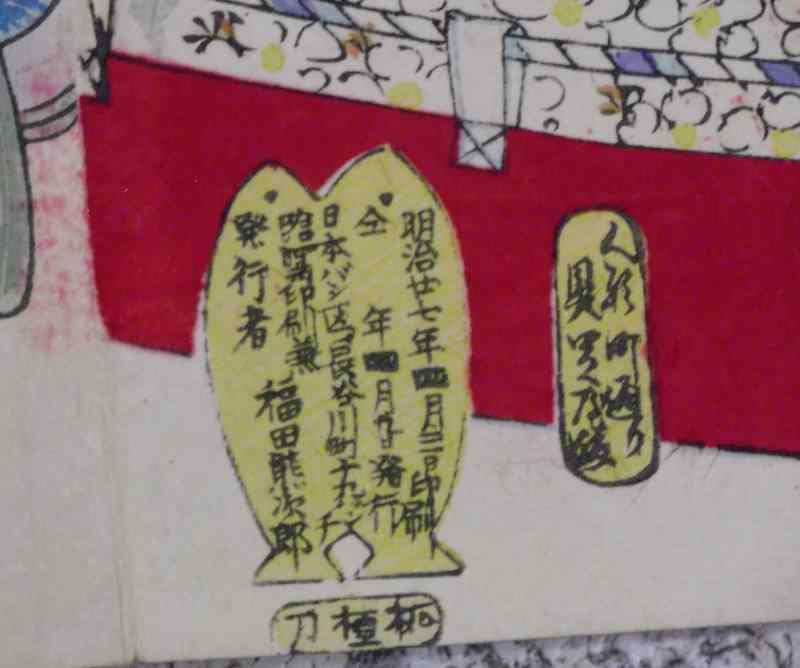 明治廿七年四月三日印刷
仝 年四月 日発行
日本バシ区長谷川町十九バンチ
臨写印刷兼
発行者 福田熊次郎
人形町通り
具足屋
彫 刀